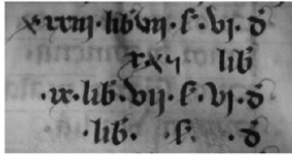 x·xxiij·lib̄·viij·ẜ·vj·đ
x·xij lib̄
·ix·lib̄·vij·ẜ·vj·đ
·lib̄· ·ẜ· ·đ